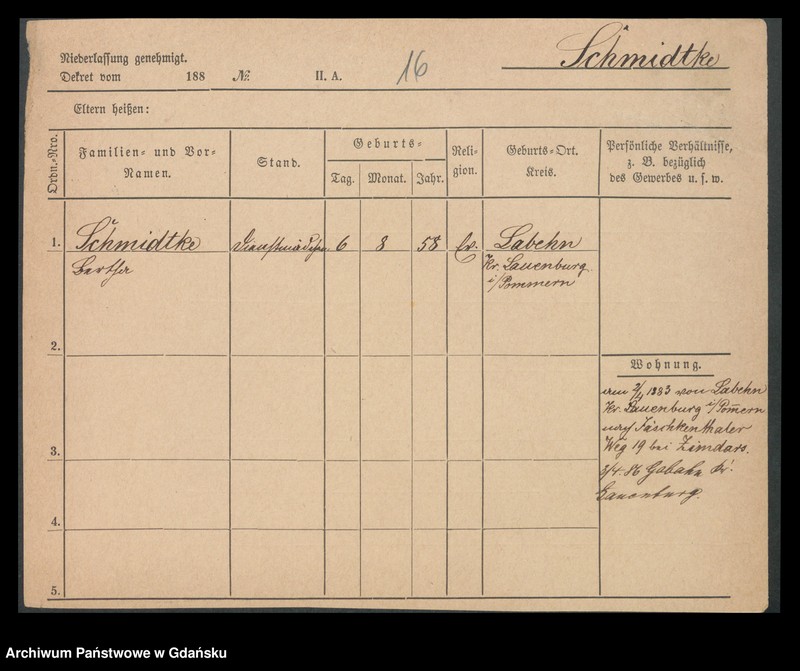 Schmidtke
Niederlassung genehmigt.
Dekret vom 188 No. II. A. 16
Eltern heißen:
Ordn.-Nro.
Familien- und Vor-
Namen.
Stand.
Geburts-
Tag. Monat. Jahr.
Reli-
gion.
Geburts-Ort.
Kreis.
Persönliche Verhältnisse,
z. B. bezüglich
des Gewerbes u. s. w.
1. Schmidtke Dienstmädchen 6 8 58 Ev. Labehn
Bertha Kr. Lauenburg
i/Pommern
2.
Wohnung.
am 2/4 1883 von Labehn
Kr. Lauenburg i/Pom̅ern
nach Jäschkenthaler
Weg 19 bei Zimdars.
3/4. 86 Kr.
Lauenburg.
3.
4.
5.
Archiwum Państwowe w Gdańsku